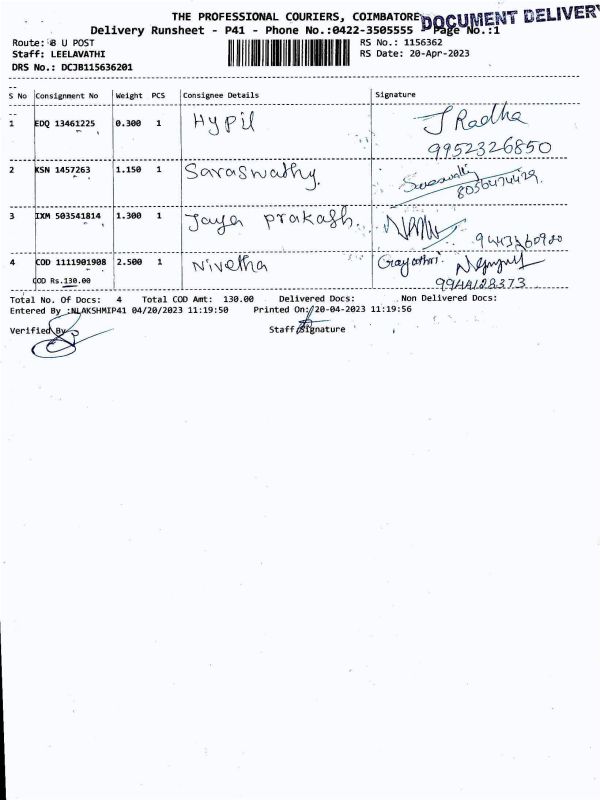 THE PROFESSIONAL COURIERS, COIMBATORE
DOCUMENT DELIVERY
Delivery Runsheet - P41 - Phone No.:0422-3505555 - Page No.:1
Route: 8 U POST
RS No.: 1156362
Staff: LEELAVATHI
RS Date: 20-Apr-2023
DRS No.: DCJB115636201
S No Consignment No Weight PCS Consignee Details Signature
1 EDQ 13461225 0.300 1 Hypil J Radha
9952326850
2 KSN 1457263 1.150 1 Saraswathy. Saraswathy
8056474429.
3 IXM 503541814 1.300 1 Jaya prakash.
4 COD 1111901908 2.500 1 Nivetha Gayathri
COD Rs.130.00
9944128373
Total No. Of Docs: 4 Total COD Amt: 130.00 Delivered Docs: Non Delivered Docs:
Entered By :NLAKSHMIP41 04/20/2023 11:19:50 Printed On: 20-04-2023 11:19:56
Verified By Staff Signature